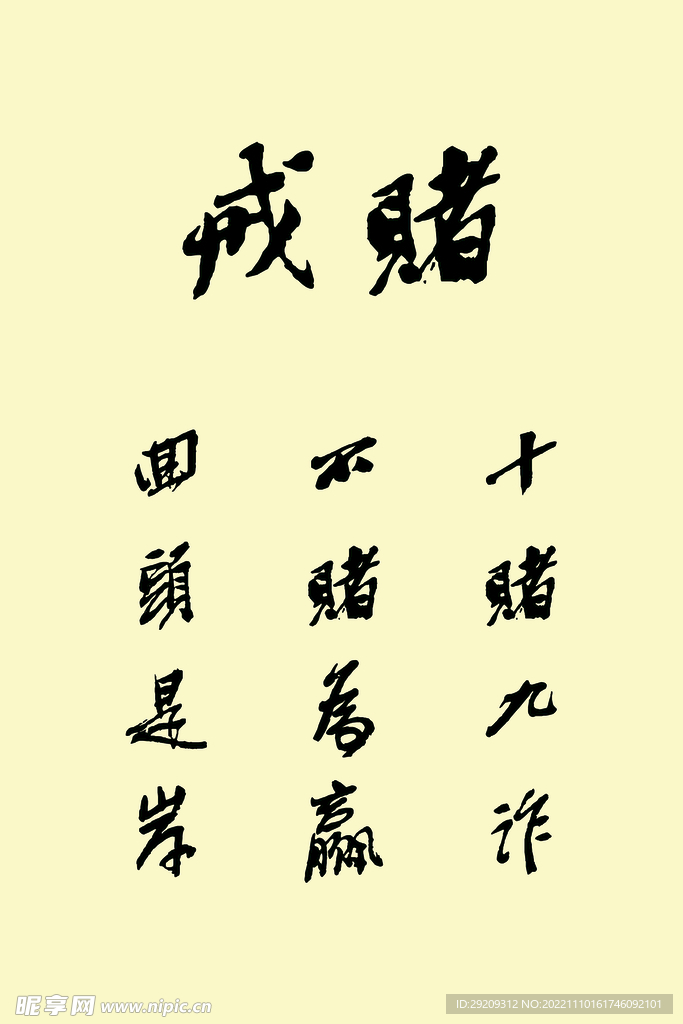 戒賭
十賭九诈
不賭為赢
回頭是岸
昵享网 www.nipic.cn
ID:29209312 NO:20221110161746092101